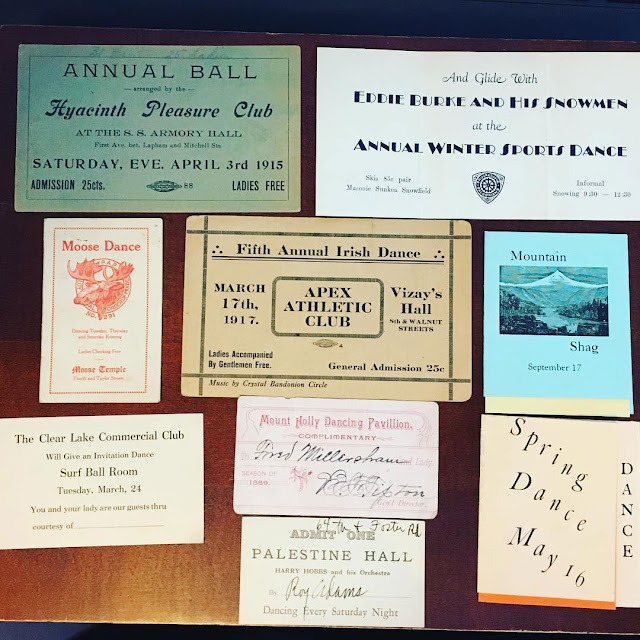 ANNUAL BALL
arranged by the
Hyacinth Pleasure Club
AT THE S. S. ARMORY HALL
First Ave. bet. Lapham and Mitchell Sts.
SATURDAY, EVE. APRIL 3rd 1915
ADMISSION 25cts.
88
LADIES FREE
And Glide With
EDDIE BURKE AND HIS SNOWMEN
at the
ANNUAL WINTER SPORTS DANCE
Skis 85c pair
Masonic Sunken Snowfield
Informal
Snowing 9:30 — 12:30
Moose Dance
P.A.P.
NO. 291
Dancing Tuesday, Thursday
and Saturday Evening
Ladies Checking Free
Moose Temple
Fourth and Taylor Streets
Fifth Annual Irish Dance
MARCH
17th,
1917.
APEX
ATHLETIC
CLUB
Vizay's
Hall
8th & WALNUT
STREETS
Ladies Accompanied
By Gentlemen Free.
General Admission 25c
Music by Crystal Bandonion Circle
Mountain
Shag
September 17
The Clear Lake Commercial Club
Will Give an Invitation Dance
Surf Ball Room
Tuesday, March, 24
You and your lady are our guests thru
courtesy of
Mount Holly Dancing Pavillion,
COMPLIMENTARY
To Fred Millersham and Lady.
SEASON OF
1889.
Tipton
Gen'l Director.
64th & Foster Rd
ADMIT ONE
PALESTINE HALL
HARRY HOBBS and his Orchestra
By Roy Adams
Dancing Every Saturday Night
Spring
Dance
May 16
DANCE